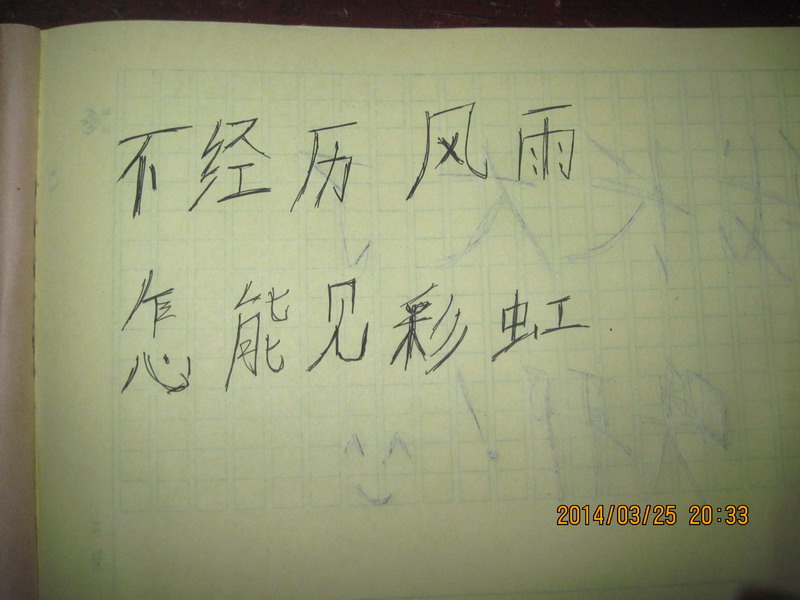 不经历风雨
怎能见彩虹.
2014/03/25 20:33